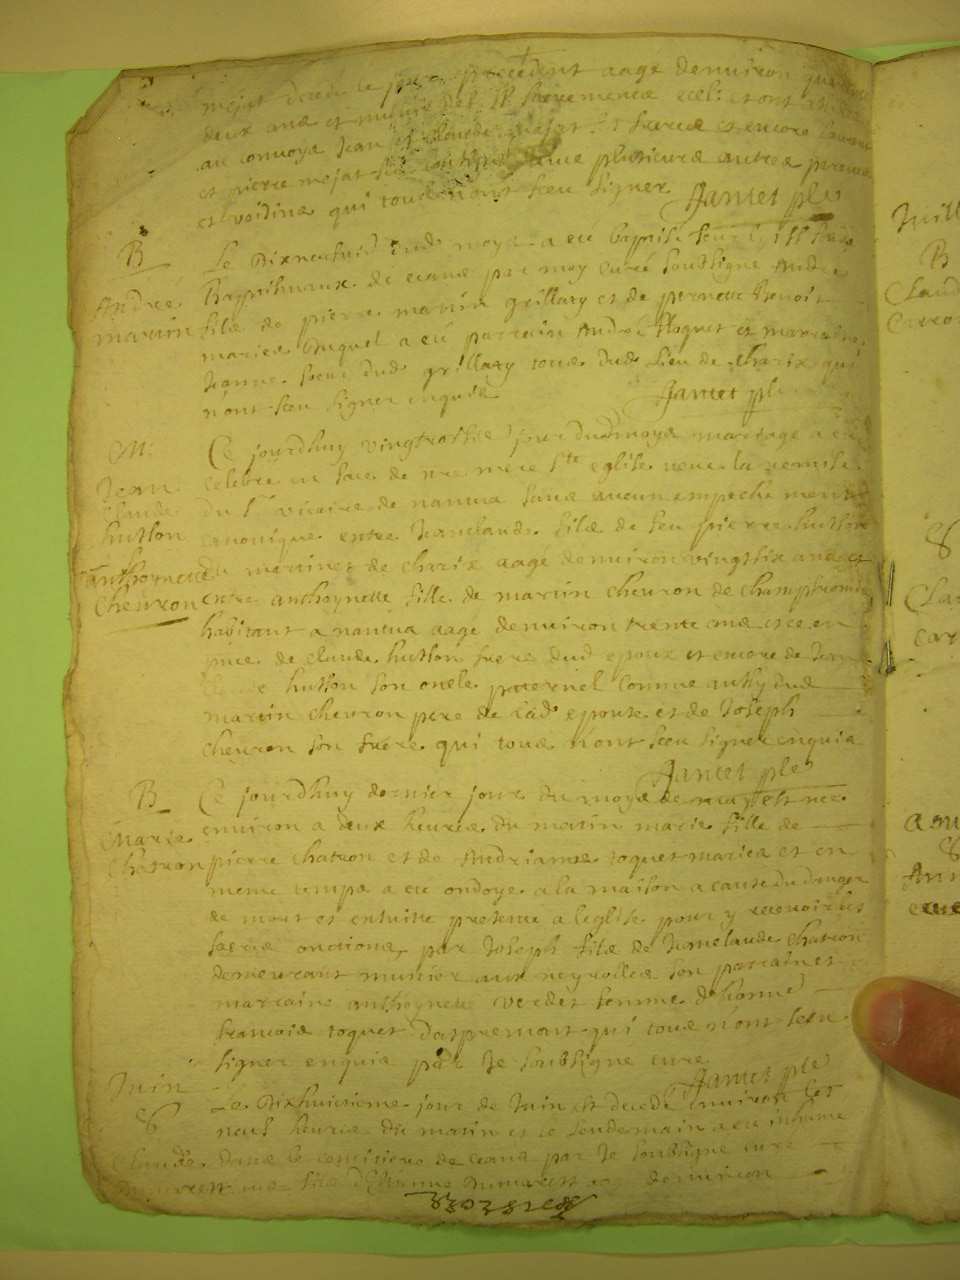 mojat decedé le jour precedent aagé denviron
deux ans et muni des Sts Sacremens eccl: et ont
au convoy Jean et Claude mojat ses freres et encore
et pierre mojat plusieurs autres parens
et voisins qui tous n'ont sceu signer Jantet ptre
B Le Dixneufvie dud moys a eté baptisé sur les
Andre baptismaux de ceans par moy curé soubsigne André
martin fils de pierre martin grillaty et de pernette benoit
maries Auquel a eté parrain André floquet et marraine
Jeanne soeur dud grillaty tous dud lieu de charix qui
n'ont sceu signer enquis Jantet ptre
M. Ce jourdhuy vingt jour dud moys mariage a eté
Jean celebré en face de nre mere Ste eglise veue la remise
Claude du Sr vicaire de nantua sans aucun empechement
hutton canonique entre Jeanclaude fils de feu pierre hutton
Anthoynette du martinet de charix aagé denviron vingtsix ans et
Chevron entre anthoynette fille de martin chevron de champfromier
habitant a nantua aagé denviron trente ans et ce en
pnce de claude hutton frere dud epoux et encore de Jean
claude hutton son oncle paternel comme aussy dud
martin chevron pere de lad epouse et de Joseph
chevron son frere qui tous n'ont sceu signer enquis
Jantet ptre
B Ce jourdhuy dernier jour du moys de may est née
Marie environ a deux heures du matin marie fille de
Chatron pierre chatron et de Andrianne toquet maries et en
meme temps a eté ondoyé a la maison a cause du danger
de mort et ensuitte presenté a leglise pour y recevoir les
sacrés onctions par Joseph fils de Jeanclaude chatron
demeurant munier aux neyrolles son parrain et
marraine anthoynette verdet femme d'honné
francois toquet daspremont qui tous n'ont sceu
signer enquis par Je soubsigne curé
Jantet ptre
Juin Le Dixhuictieme jour de Juin est decedé environ les
S neuf heures du matin et le lendemain a eté inhumé
Claude dans le cimetiere de ceans par Je soubsigne curé
fils d'Estienne denviron